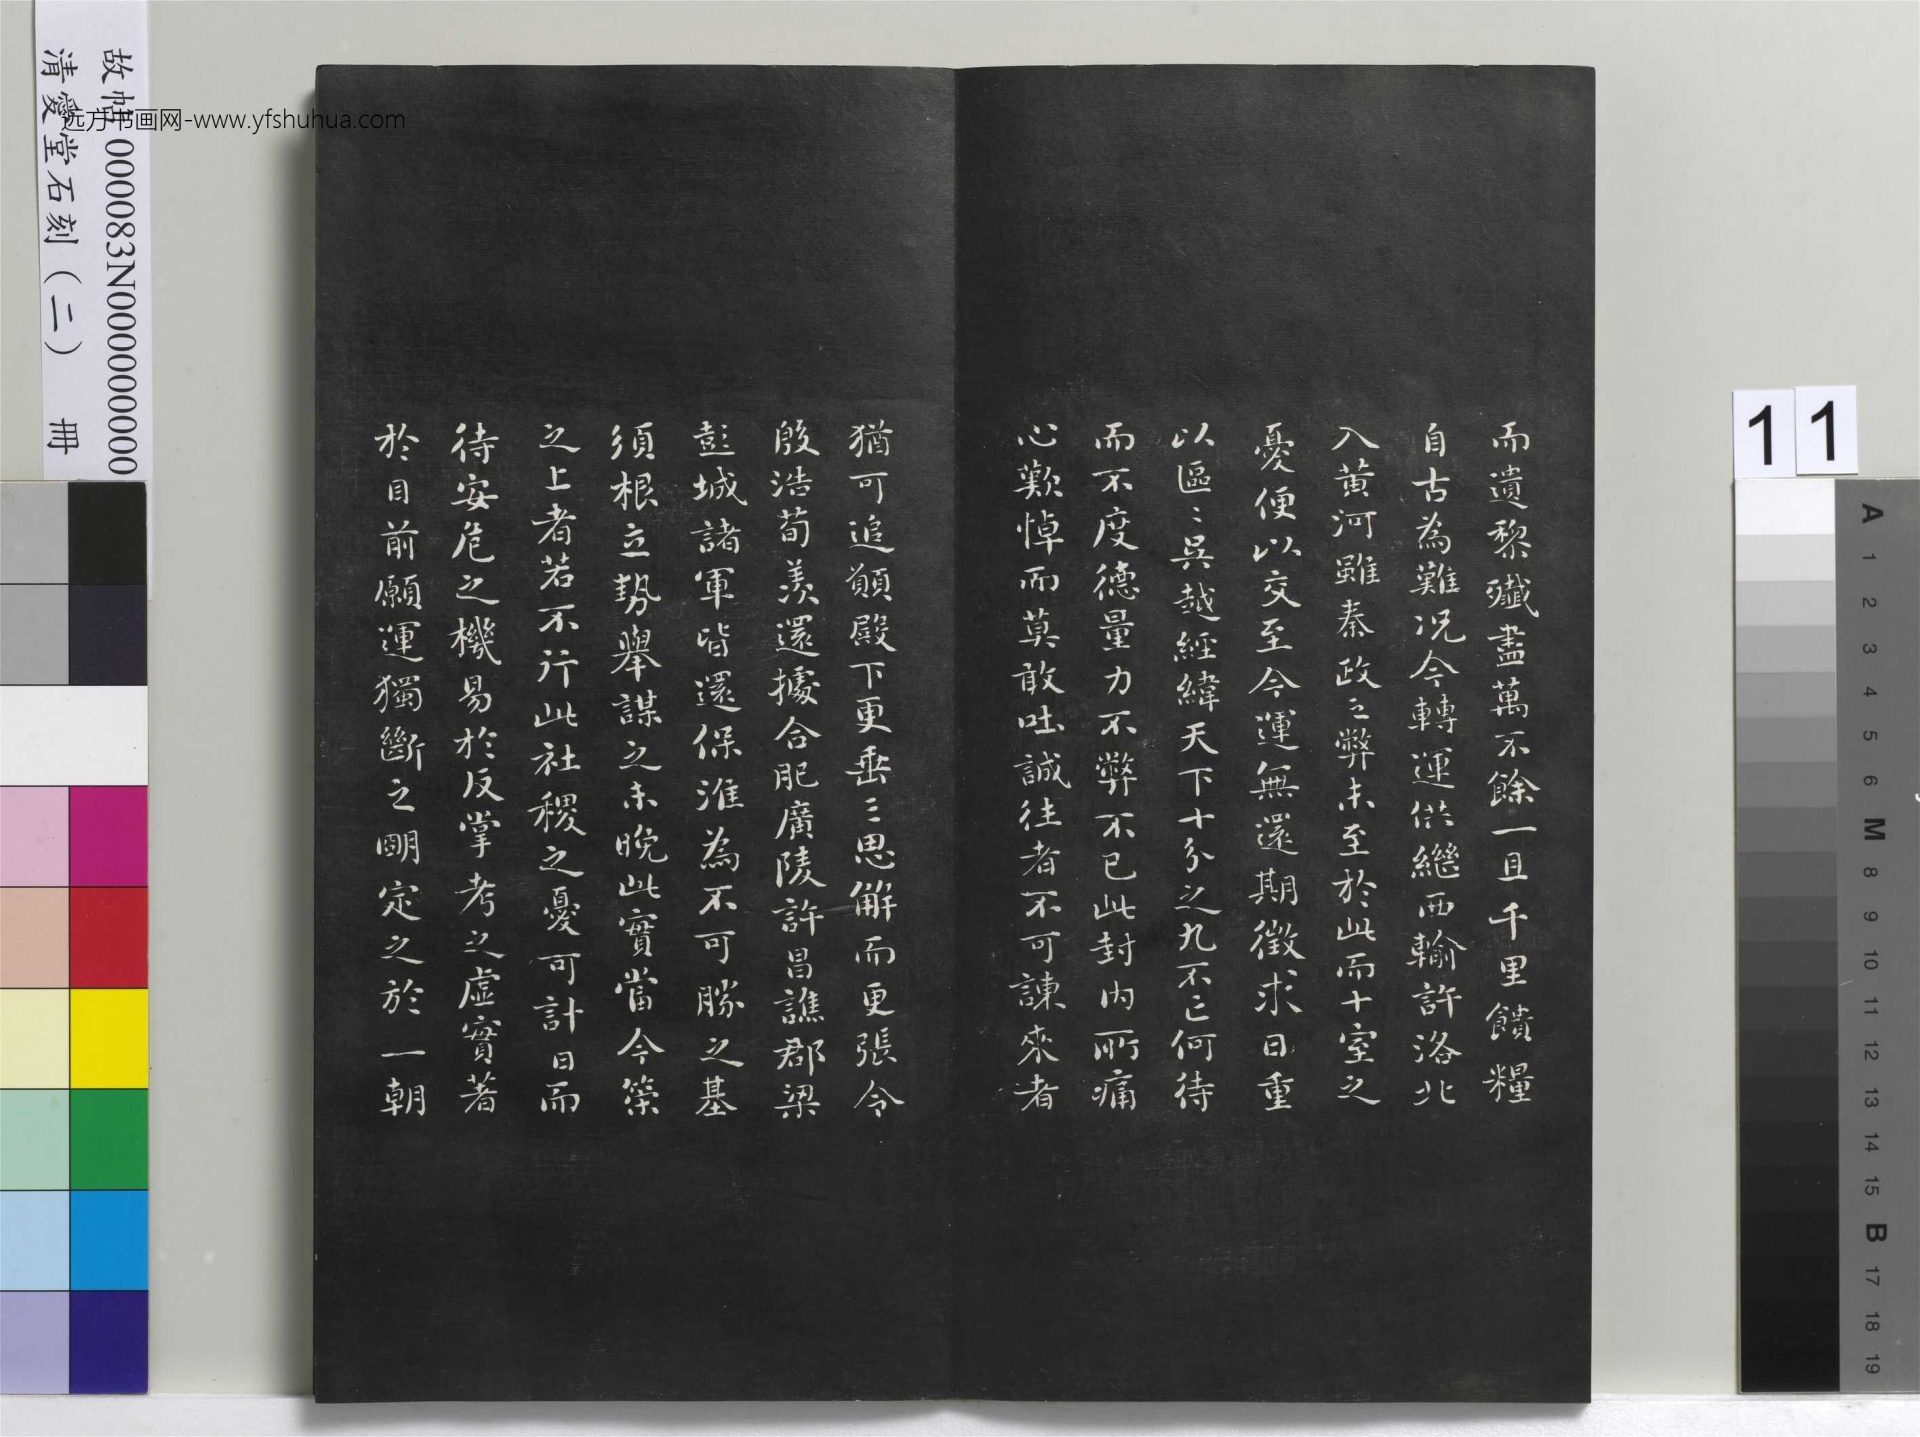 而遺黎殲盡萬不餘一且千里饋糧
自古為難況今轉運供繼西輸許洛北
入黃河雖秦政之弊未至於此而十室之
憂便以交至今運無還期徵求日重
以區〻吳越經緯天下十分之九不亡何待
而不度德量力不弊不已此封内所痛
心歎悼而莫敢吐誠往者不可諫來者
猶可追願殿下更垂三思解而更張令
殷浩荀羨還據合肥廣陵許昌譙郡梁
彭城諸軍皆還保淮為不可勝之基
須根立勢舉謀之未晚此實當今策
之上者若不行此社稷之憂可計日而
待安危之機易於反掌考之虛實著
於目前願運獨斷之明定之於一朝
故帖000083N000000000
清愛堂石刻（二） 冊
远方书画网-www.yfshuhua.com
11
A 1 2 3 4 5 6 M 8 9 10 11 12 13 14 15 B 17 18 19